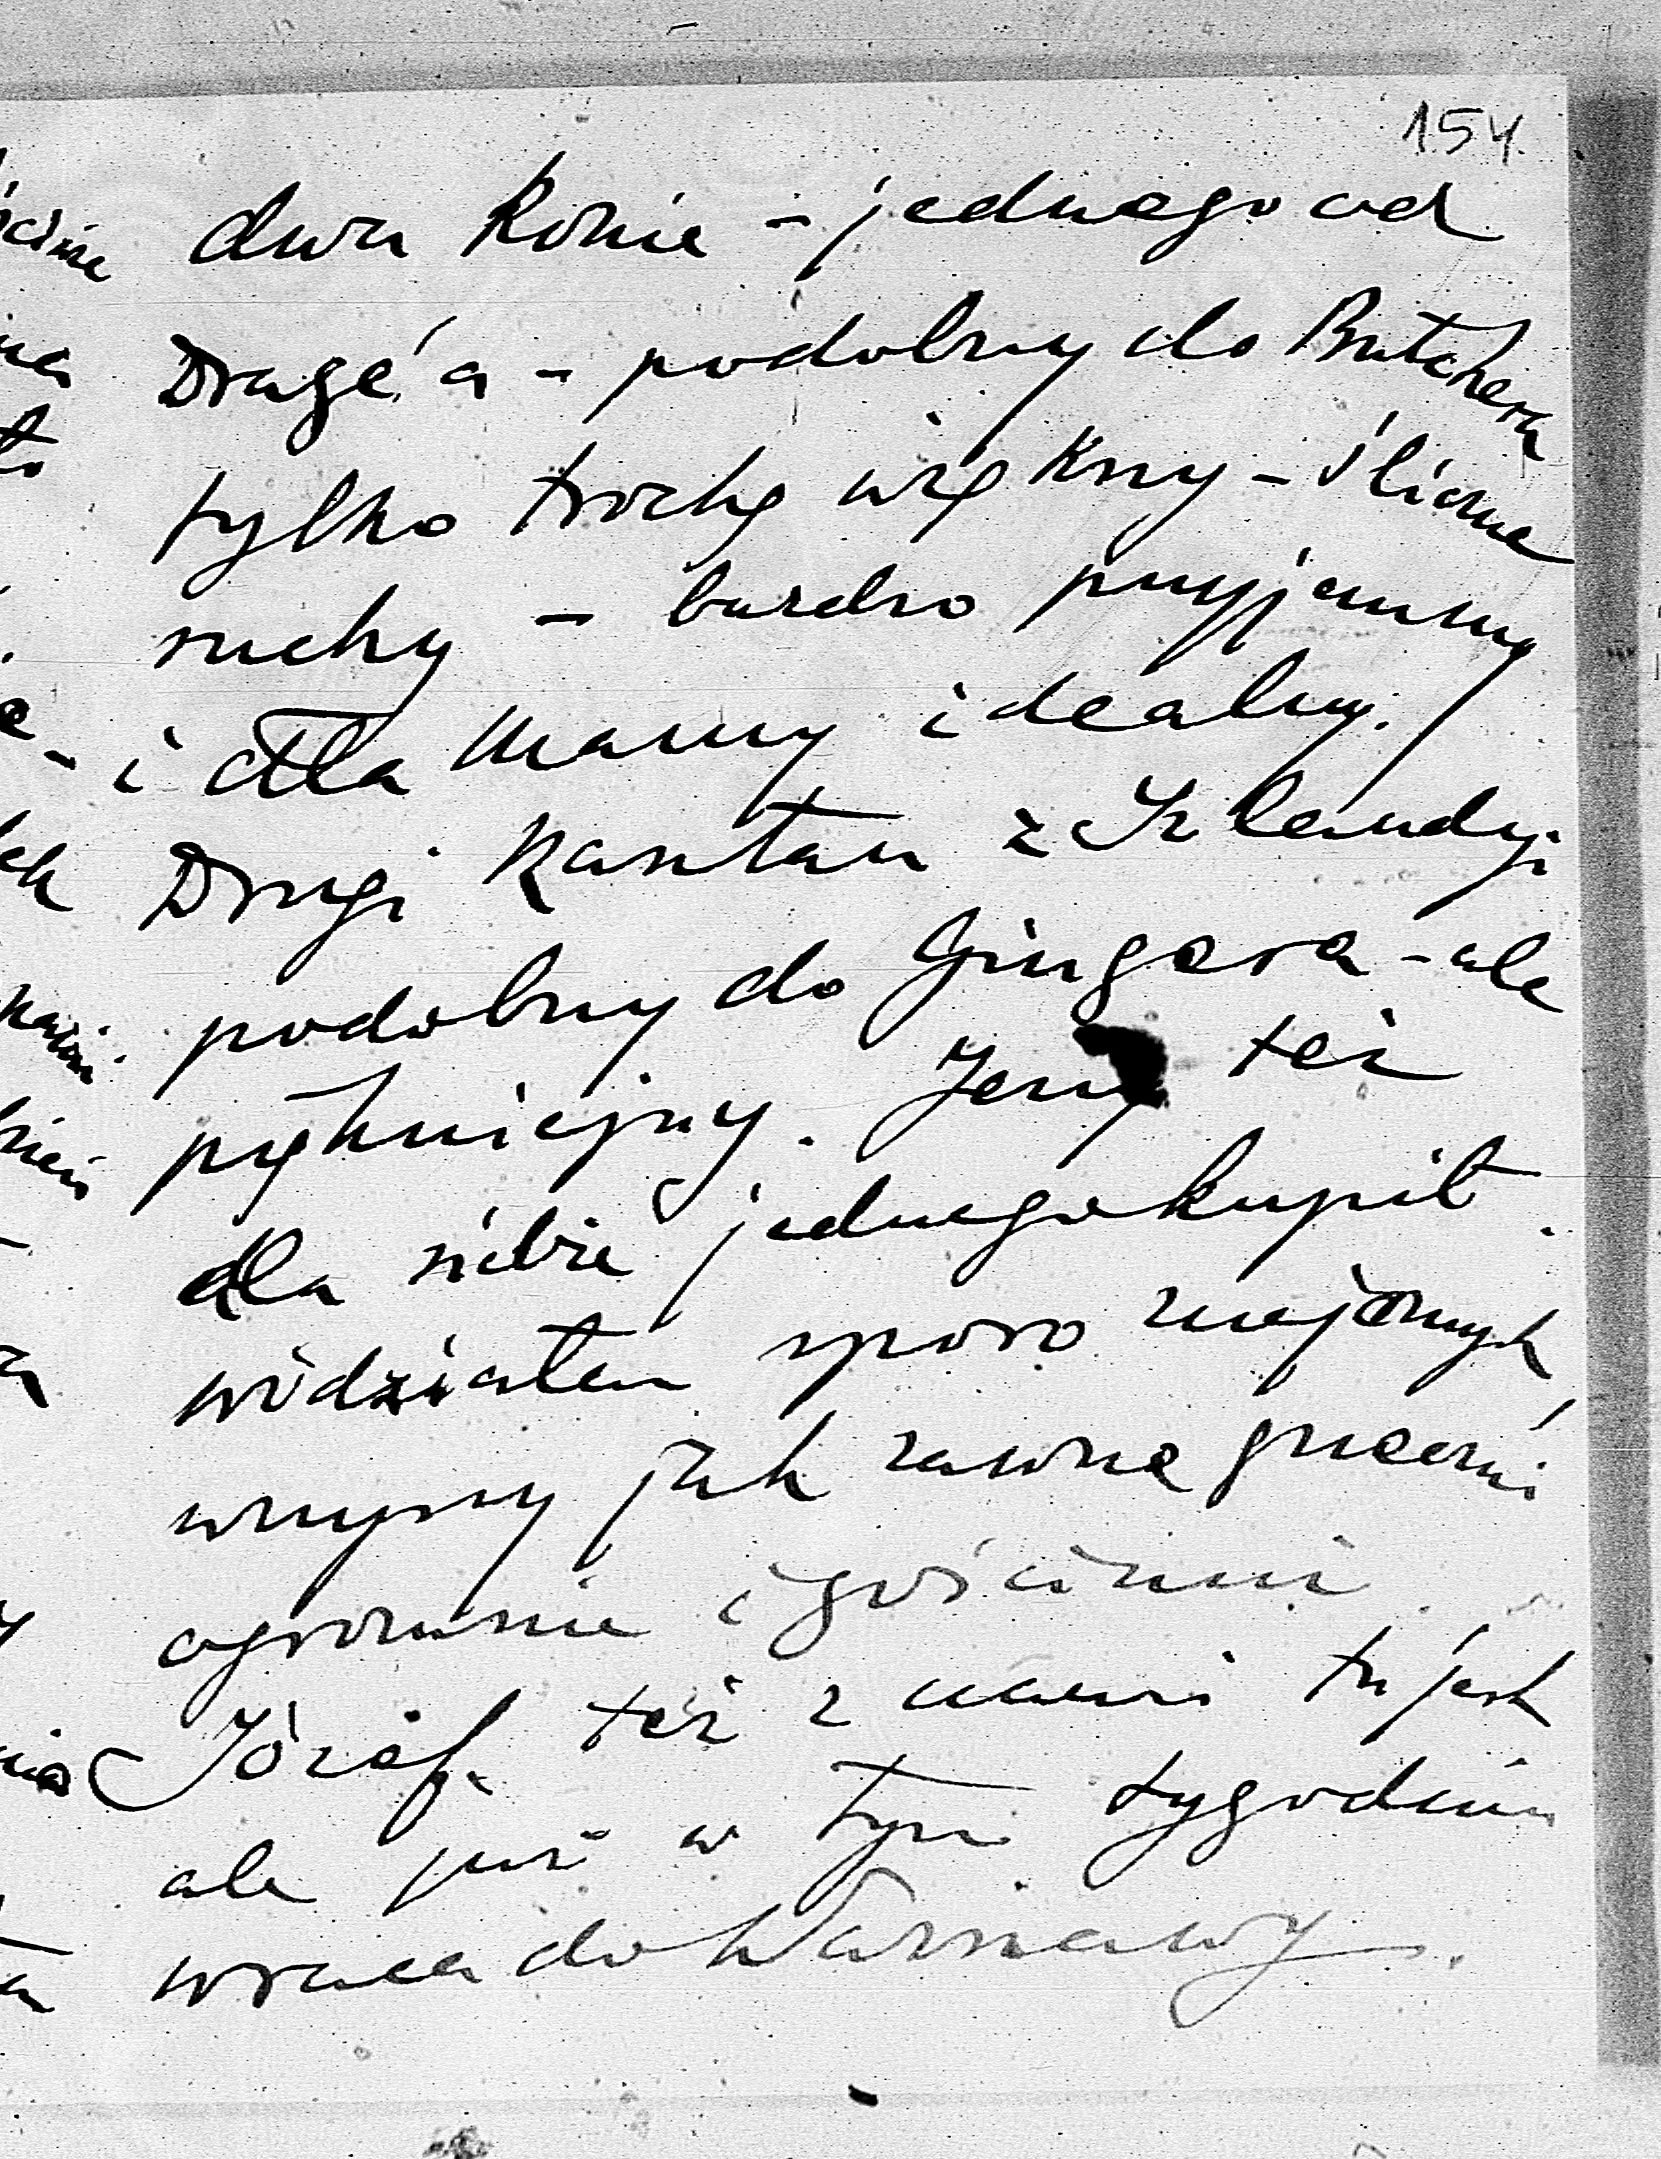 154.
dwa konie – jednego od
Dragé'a – podobny do Butchera
tylko trochę większy – ślicznie
suchy – bardzo przyjemny
i dla Mamy idealny.
Drugi kasztan z Irlandji
podobny do Gingera – ale
piękniejszy. Jerzy też
dla siebie jednego kupił.
widziałem sporo znajomych
wszyscy jak zawsze grzeczni
ogromnie i gościnni
Józef też z nami tu jest
ale już w tym tygodniu
wraca do Warszawy.